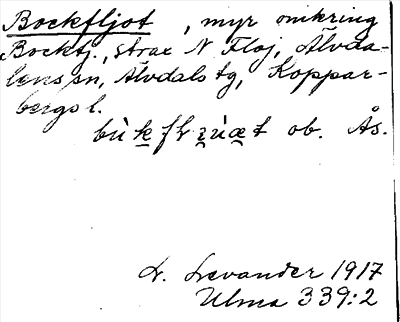 Bockfljot, myr omkring
Bocktj., strax N Flöj, Älvda-
lens sn, Älvdals tg, Koppar-
bergs l.
ob. Ås.
L. Levander 1917
Ulma 339:2